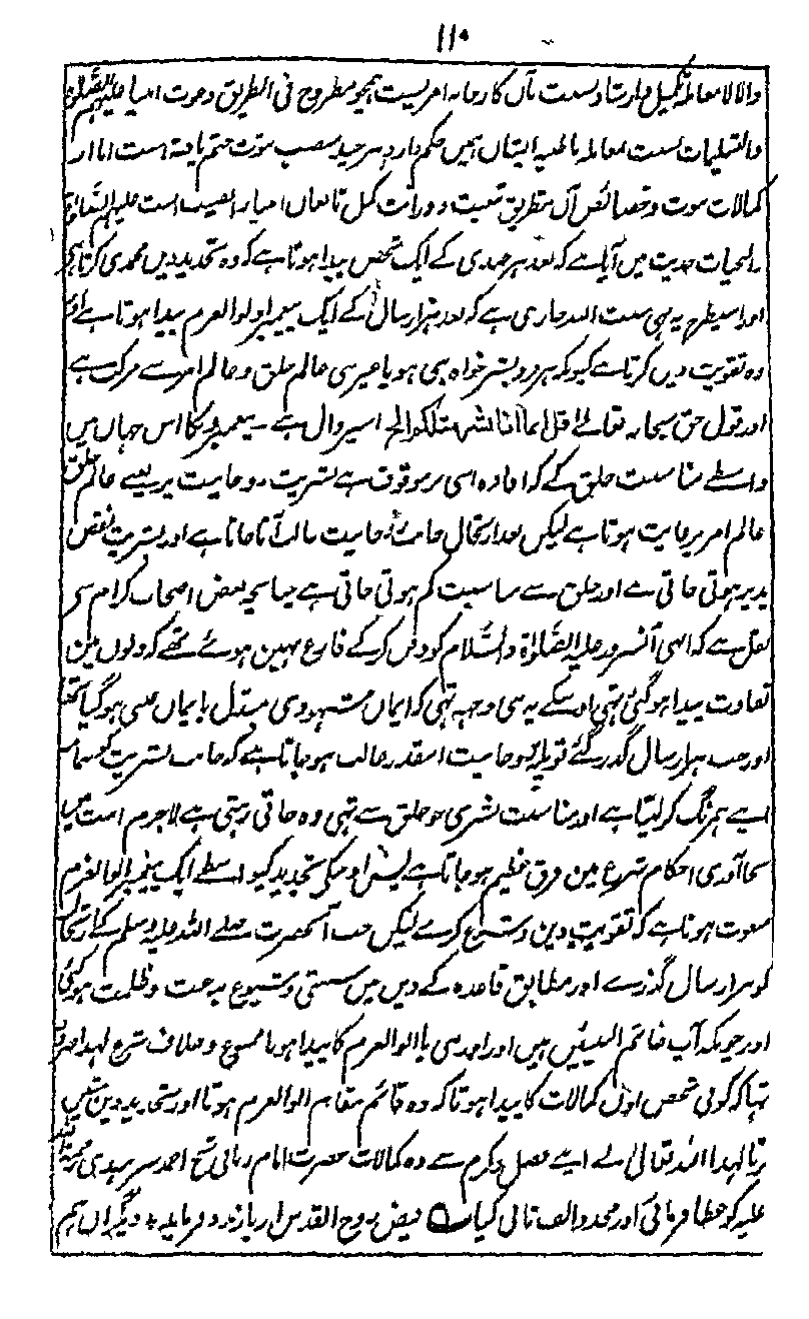 ۱۱۰
والا لا معاملہ تکمیل و ارشاد نسبت بآں کارخانہ امریست ہمچو مطروح فی الطریق دعوت انبیا علیہم الصلوٰۃ
والتسلیمات نسبت معاملہ باطنیہ ایشاں ہمیں حکم دارد ہرچند منصب نبوت ختم یافتہ است اما از
کمالات نبوت و خصائص آں بطریق تبعیت و وراثت کمل تابعان انبیا را نصیب است علیہم الصلوات
والتحیات حدیث میں آیا ہے کہ بعد ہر صدی کے ایک شخص پیدا ہوتا ہے کہ وہ تجدید دیں محمدی کرتا ہے
اور اسیطرح یہ بھی سنت اللہ جاری ہے کہ بعد ہزار سال کے ایک پیغمبر اولوالعزم پیدا ہوتا ہے اور
وہ تقویت دیں کرتا ہے کیونکہ ہر فرد بشر خواہ نبی ہو یا غیر نبی عالم خلق و عالم امر سے مرکب ہے
اور قول حق سبحانہ تعالےٰ قل انما انا بشر مثلکم الخ اسپر دال ہے ۔ پیغمبر کا اس جہاں میں
واسطے مناسبت خلق کے کہ افادہ اسی پر موقوف ہے بشریت روحانیت پر یعنے عالم خلق
عالم امر پر غالب ہوتا ہے لیکن بعد ارتحال جانب روحانیت غالب آتا جاتا ہے اور بشریت نقص
پذیر ہوتی جاتی ہے اور خلق سے مناسبت کم ہوتی جاتی ہے چنانچہ بعض اصحاب کرام سے
نقل ہے کہ ابھی آنسرور علیہ الصلوٰۃ والسلام کو دفن کرکے فارغ نہین ہوئے تھے کہ دلوں مین
تفاوت پیدا ہوگئی تہی اوسکے یہ ہی وجہہ تہی کہ ایماں شہودی مبدل بایماں غیبی ہوگیا تھا
اور جب ہزار سال گذر گئے تو پلہ روحانیت اسقدر غالب ہو جاتا ہے کہ جانب بشریت کو تمامہ
اپنے ہمرنگ کرلیتا ہے اور مناسبت بشری جو خلق سے تہی وہ جاتی رہتی ہے لاجرم امت میں
بجا آوری احکام شرع مین فرق عظیم ہو جاتا ہے پس اوسکی تجدید کیواسطے ایک پیغمبر اولوالعزم
مبعوث ہوتا ہے کہ تقویت دین و شرع کرے لیکن جب آنحضرت صلے اللہ علیہ وسلم کے ارتحال
کو ہزار سال گذرے اور مطابق قاعدہ کے دیں میں سستی و شیوع بدعت و ظلمت ہوگئی
اور چونکہ آپ خاتم النبیین ہیں اور اور نبی یا اولوالعزم کا پیدا ہونا ممنوع و خلاف شرع لہذا ضرور
تہا کہ کوئی شخص اوں کمالات کا پیدا ہوتا کہ وہ قائم مقام الوالعزم ہوتا اور تجدید دین متیں
کرتا لہذا اللہ تعالیٰ نے اپنے فضل و کرم سے وہ کمالات حضرت امام ربانی شیخ احمد سرہندی رحمۃ اللہ
علیہ کو عطا فرمائی اور مجدد الف ثانی کیا ؎ فیض روح القدس ار باز مدد فرماید ٭ دیگراں ہم